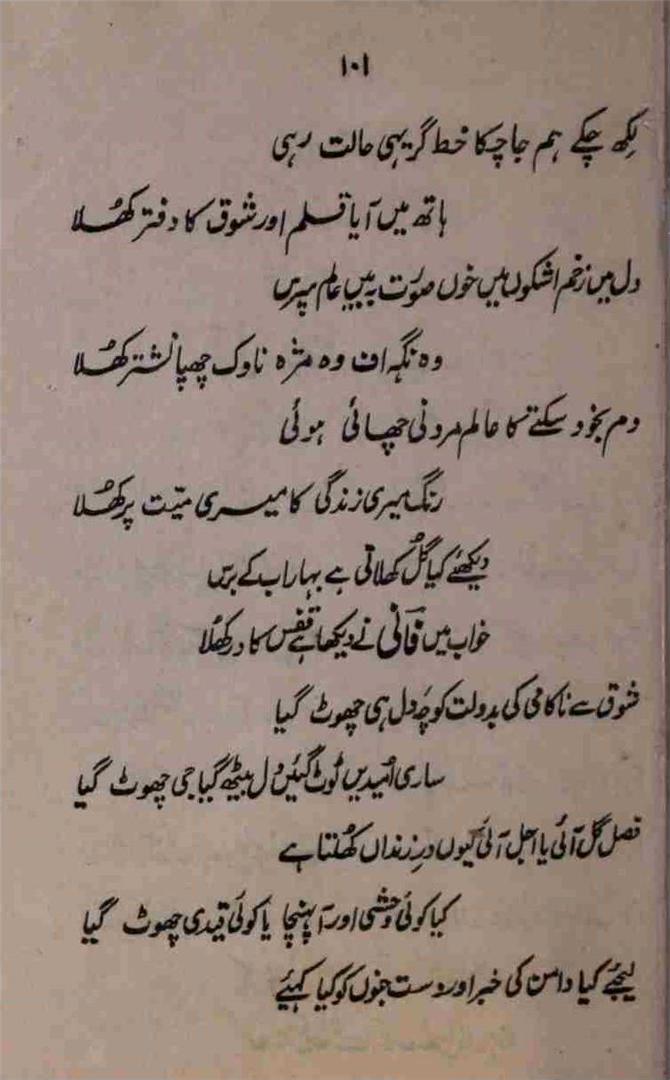 ۱۰۱
لکھ چکے ہم جا چکا خط گر یہی حالت رہی
ہاتھ میں آیا قلم اور شوق کا دفتر کھُلا
دل میں زخم اشکوں میں خوں صورت پہ ہیں عالم پرس
وہ نگہ اف وہ مژہ ناوک چھپا نشتر کھُلا
دم بخود سکتے کا عالم مردنی چھائی ہوئی
رنگ میری زندگی کا میری میّت پر کھُلا
دیکھئے کیا گُل کھلاتی ہے بہار اب کے برس
خواب میں فانی نے دیکھا ہے قفس کا در کھُلا
شوق سے ناکامی کی بدولت کوچۂ دل ہی چھوٹ گیا
ساری اُمیدیں ٹوٹ گئیں دل بیٹھ گیا جی چھوٹ گیا
فصل گل آئی یا اجل آئی کیوں درِ زنداں کھُلتا ہے
کیا کوئی وحشی اور آ پہنچا یا کوئی قیدی چھوٹ گیا
لیجئے کیا دامن کی خبر اور دست جنوں کو کیا کہیئے